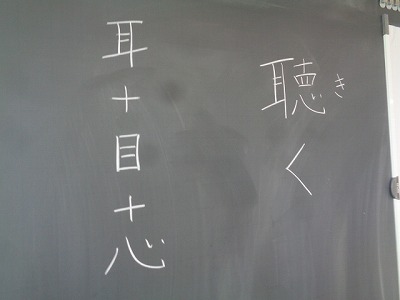 聴く
き
耳+目+心